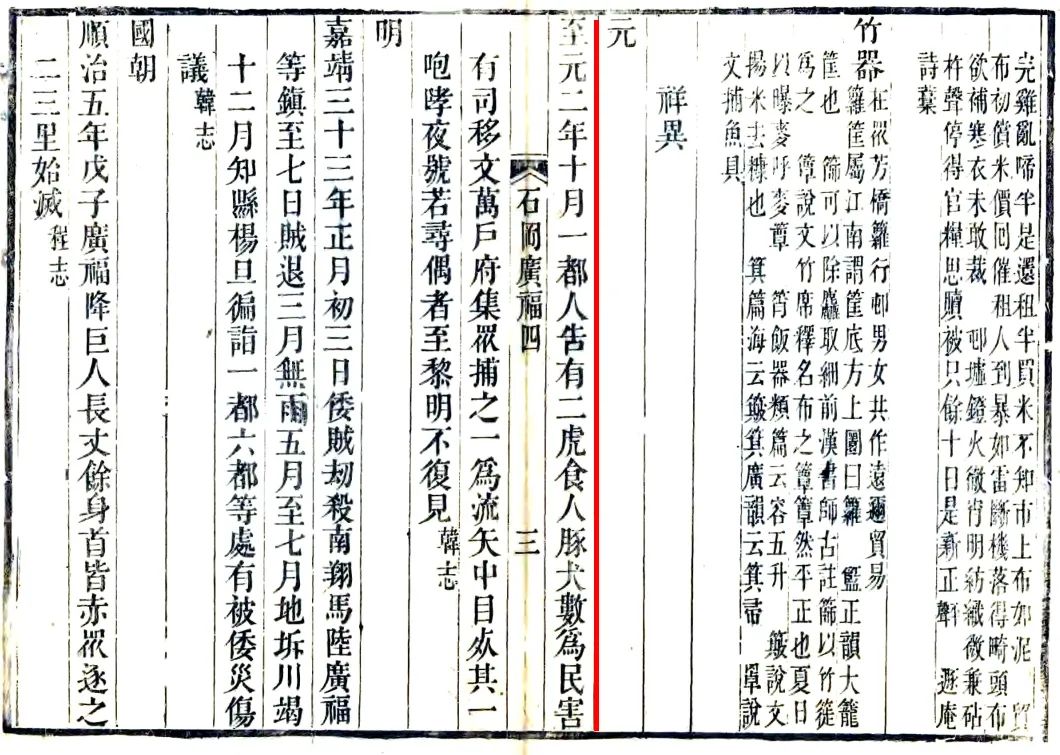 完雞亂啼半是還租半買米不知市上布如泥 貿
布初償米價回催租人到暴如雷斷機落得畸頭布
欲補寒衣未敢裁 邨墟鐙火徹宵明紡織微兼砧
杵聲停得官糧思贖被只餘十日是新正 遯庵
詩藁
竹器
在眾芳橋籮行邨男女共作遠邇貿易
籮筐屬江南謂筐底方上圜曰籮 籃正韻大籠
筐也 篩可以除麤取細前漢書師古註篩以竹簁
爲之 簟說文竹席釋名布之簟簟然平正也夏日
以曝麥呼麥簟 筲飯器類篇云容五升 簸說文
揚米去糠也 箕篇海云簸箕廣韻云箕帚 罩說
文捕魚具
祥異
元
至元二年十月一都人告有二虎食人豚犬數爲民害
石岡廣福四 三
有司移文萬戶府集眾捕之一爲流矢中目死其一
咆哮夜號若尋偶者至黎明不復見韓志
明
嘉靖三十三年正月初三日倭賊劫殺南翔馬陸廣福
等鎮至七日賊退三月無雨五月至七月地坼川竭
十二月知縣楊旦徧詣一都六都等處有被倭災傷
議韓志
國朝
順治五年戊子廣福降巨人長丈餘身首皆赤眾逐之
二三里始滅程志